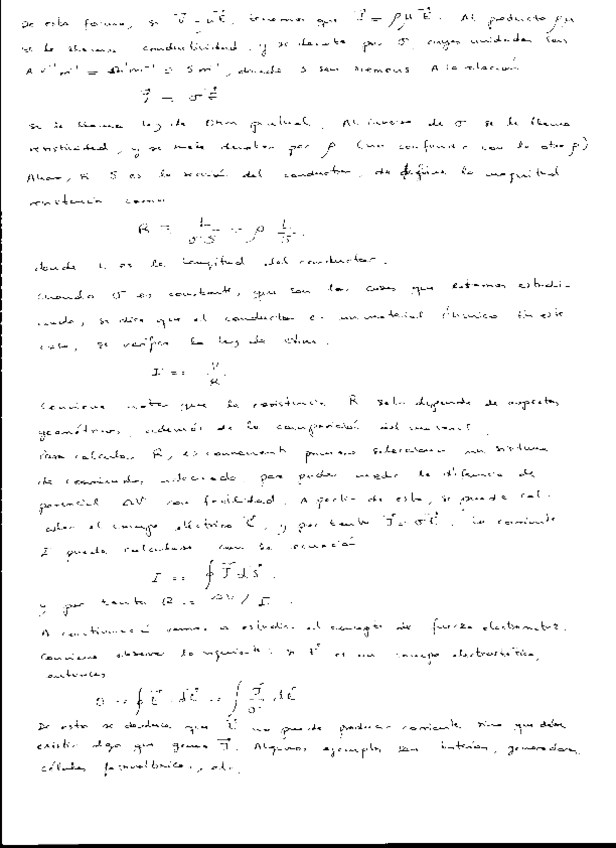 De esta forma, si v⃗ = μE⃗, tenemos que J⃗ = ρμE⃗. Al producto ρμ
se le llama conductividad, y se denota por σ, cuyas unidades son
A V⁻¹ m⁻¹ = Ω⁻¹ m⁻¹ = S m⁻¹, donde S son siemens. A la relación
J⃗ = σE⃗
se le llama ley de Ohm puntual. Al inverso de σ se le llama
resistividad, y se suele denotar por ρ (no confundir con la otra ρ)
Ahora, si S es la sección del conductor, se define la magnitud
resistencia como
R = L/σS = ρ L/S,
donde L es la longitud del conductor.
Cuando σ es constante, que son los casos que estamos estudi-
ando, se dice que el conductor es un material óhmico. En este
caso, se verifica la ley de Ohm.
I = V/R
Conviene notar que la resistencia R solo depende de aspectos
geométricos, además de la composición del material.
Para calcular R, es conveniente primero seleccionar un sistema
de coordenadas adecuado para poder medir la diferencia de
potencial ΔV con facilidad. A partir de esta, se puede cal-
cular el campo eléctrico E⃗, y por tanto J⃗ = σE⃗. La corriente
I puede calcularse con la ecuación
I = ∮ J⃗ dS⃗.
y por tanto R = ΔV / I.
A continuación vamos a estudiar el concepto de fuerza electromotriz.
Conviene observar lo siguiente: si E⃗ es un campo electrostático,
entonces
0 = ∮ E⃗ · dℓ⃗ = ∫ J⃗/σ dℓ⃗
De esto se deduce que E⃗ no puede producir corriente sino que debe
existir algo que genere J⃗. Algunos ejemplos son baterías, generadores,
células fotovoltaicas, etc.